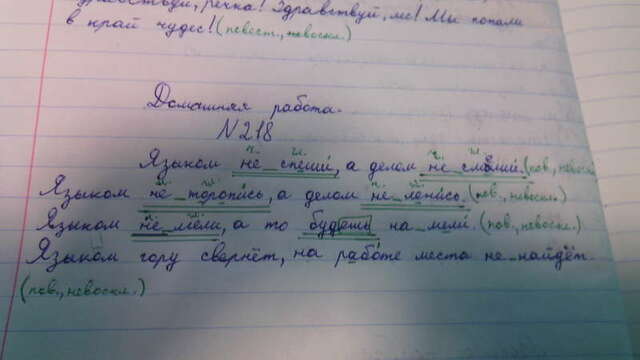 Здравствуй, речка! Здравствуй, лес! Мы попали
в край чудес! (повест., невоскл.)
Домашняя работа.
№218
Языком не спеши, а делом не смеши. (пов., невоскл.)
Языком не торопись, а делом не ленись. (пов., невоскл.)
Языком не мели, а то будешь на мели. (пов., невоскл.)
Языком гору свернёт, на работе места не найдёт.
(пов., невоскл.)